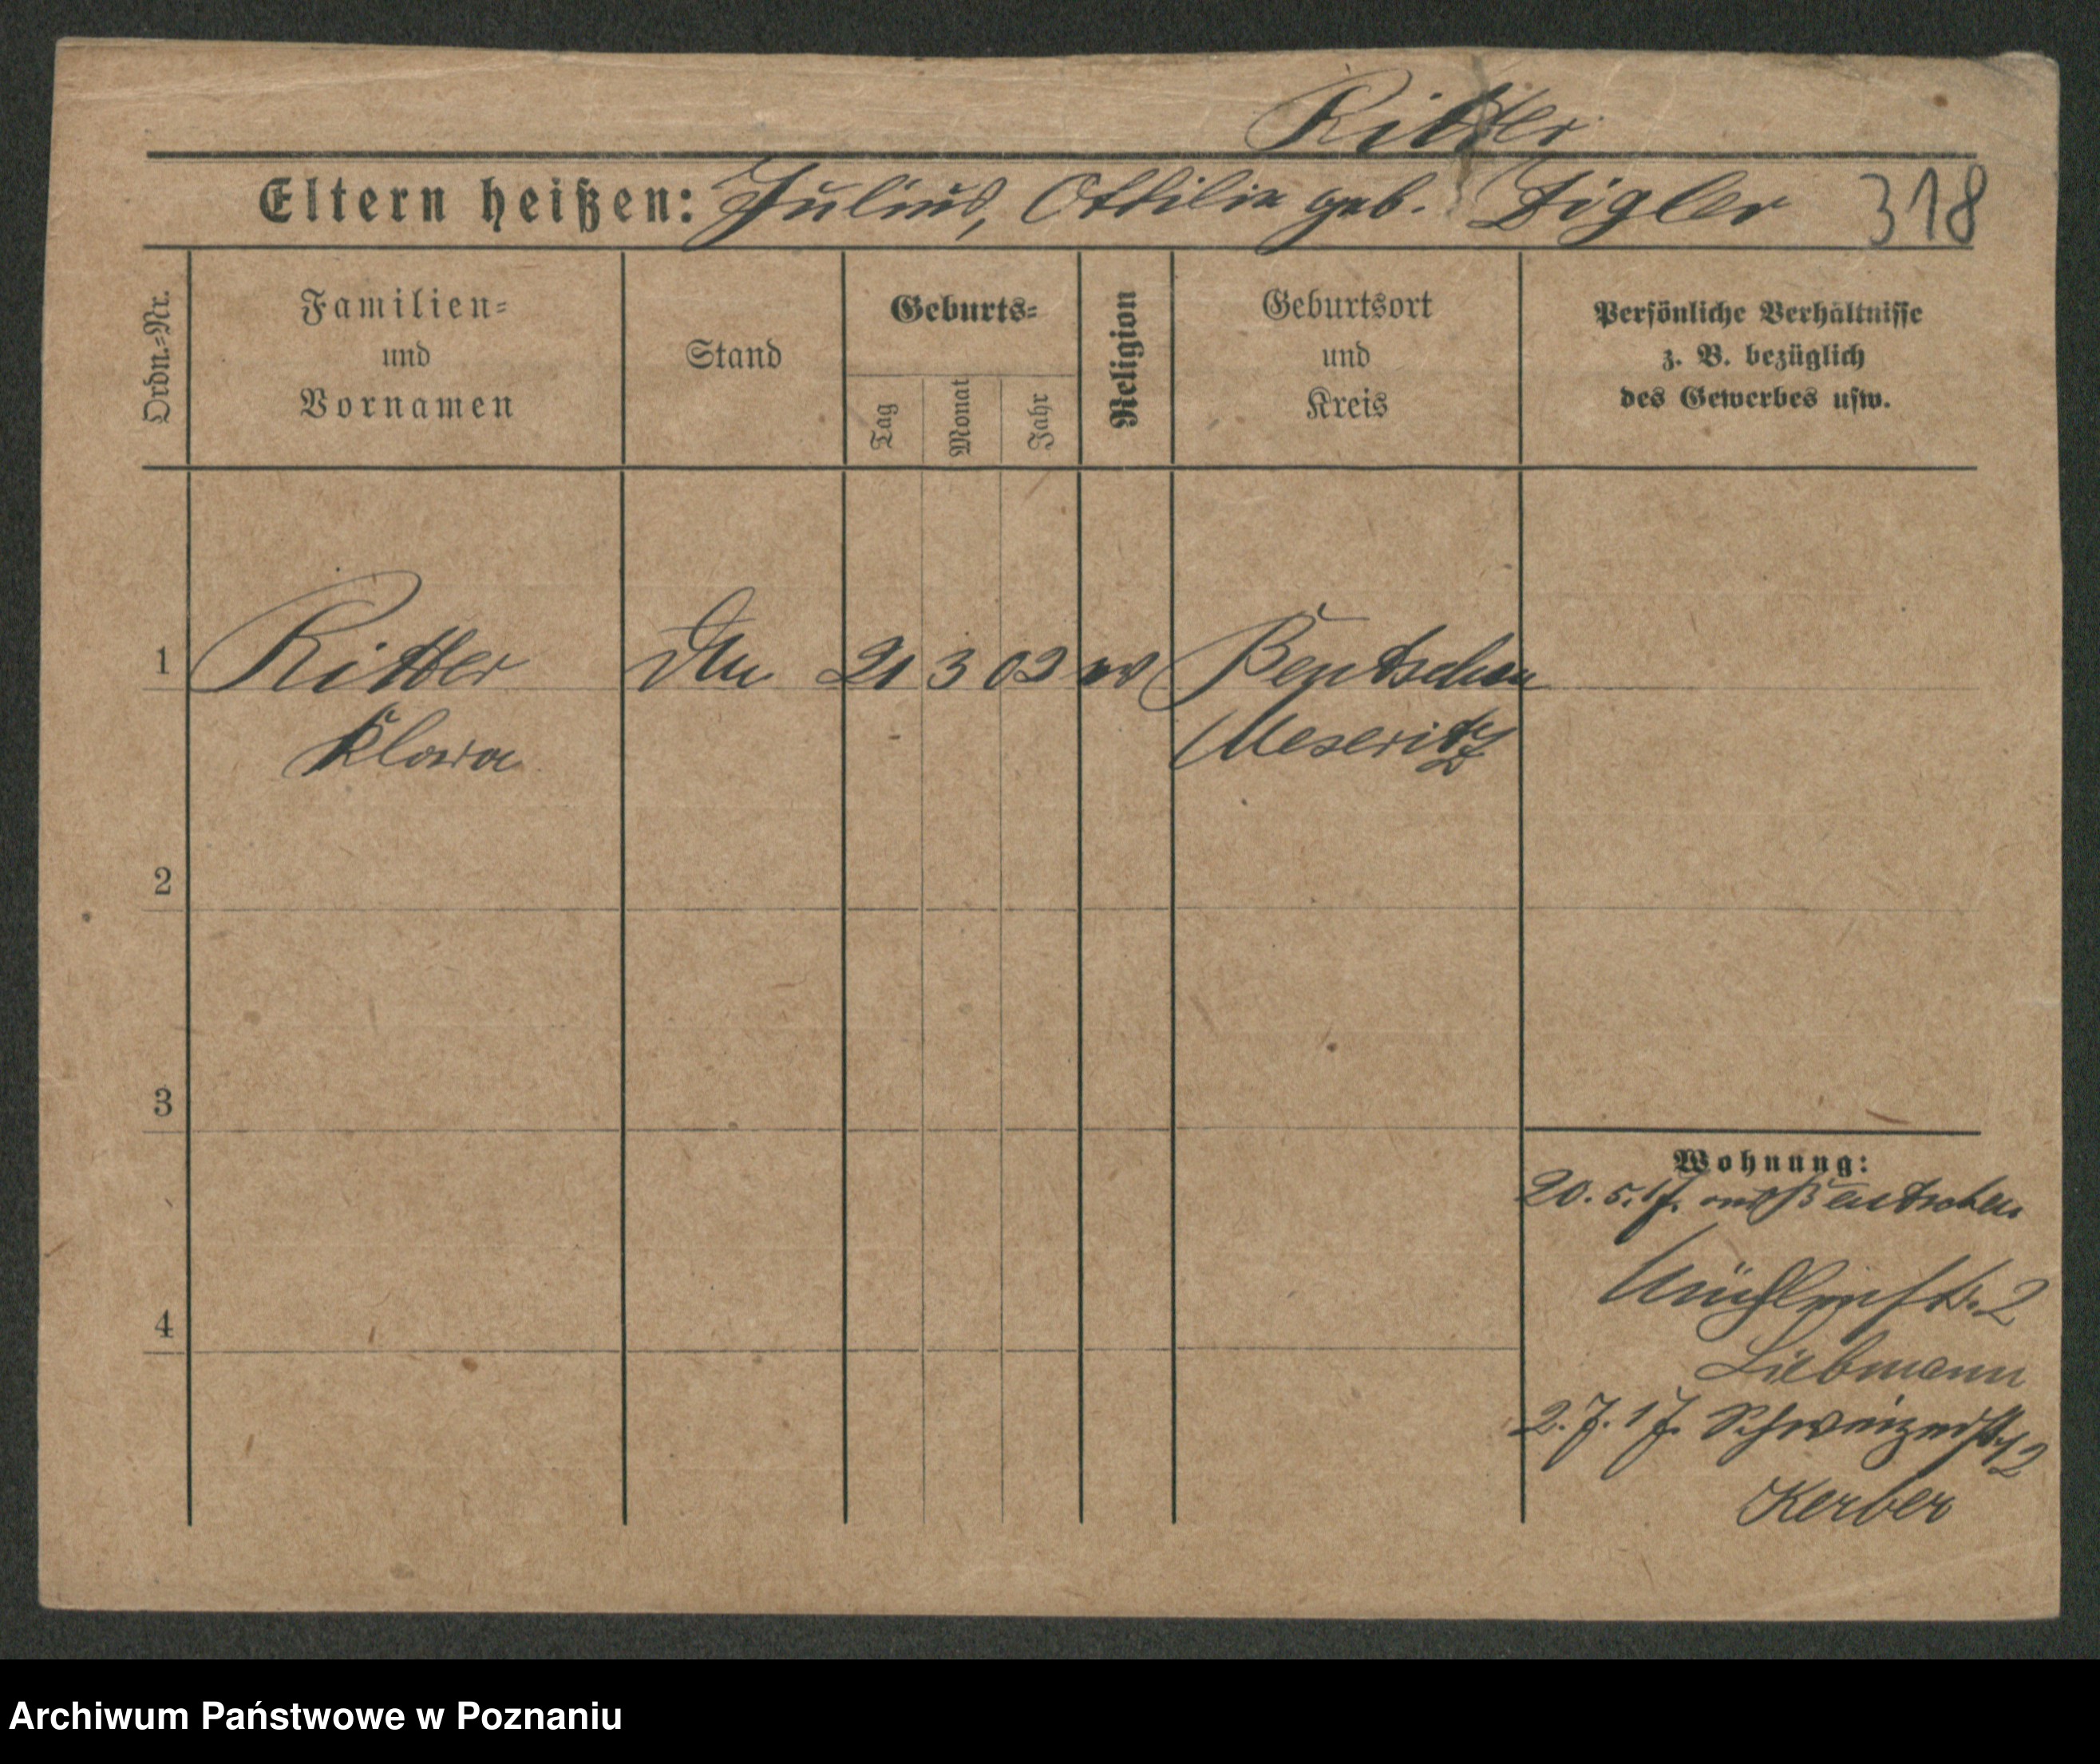 Ritter
Eltern heißen: Julius, Ottilie geb. Zigler 318
Ordn.-Nr.
Familien-
und
Vornamen
Stand
Geburts-
Tag
Monat
Jahr
Religion
Geburtsort
und
Kreis
Persönliche Verhältnisse
z. B. bezüglich
des Gewerbes usw.
1 Ritter 21 3 02 Bentschen
Klara Meseritz
2
3
4
Wohnung:
20. 5. 17. Bentschen
Mühlenstr. 2
Liebmann
2. 7. 17. Schweizerstr. 12
Kerber
Archiwum Państwowe w Poznaniu